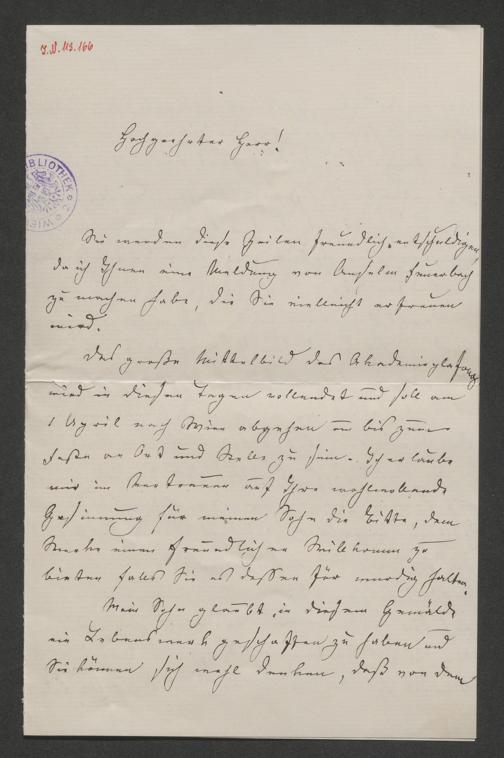 J.N. 113.166
BIBLIOTHEK
WIEN
Hochgeehrter Herr!
Sie werden diese Zeilen freundlich entschuldigen,
da ich Ihnen eine Meldung von Anselm Feuerbach
zu machen habe, die Sie vielleicht erfreuen
wird.
Das große Mittelbild des Akademieplafonds
wird in diesen Tagen vollendet und soll am
1 April nach Wien abgehen um bis zum
Feste an Ort und Stelle zu sein. Ich erlaube
mir im Vertrauen auf Ihre wohlwollende
Gesinnung für meinen Sohn die Bitte, dem
Werke einen freundlichen Willkomm zu
bieten falls Sie es dessen für würdig halten.
Mein Sohn glaubt in diesem Gemälde
ein Lebenswerk geschaffen zu haben und
Sie können sich wohl denken, daß von dem